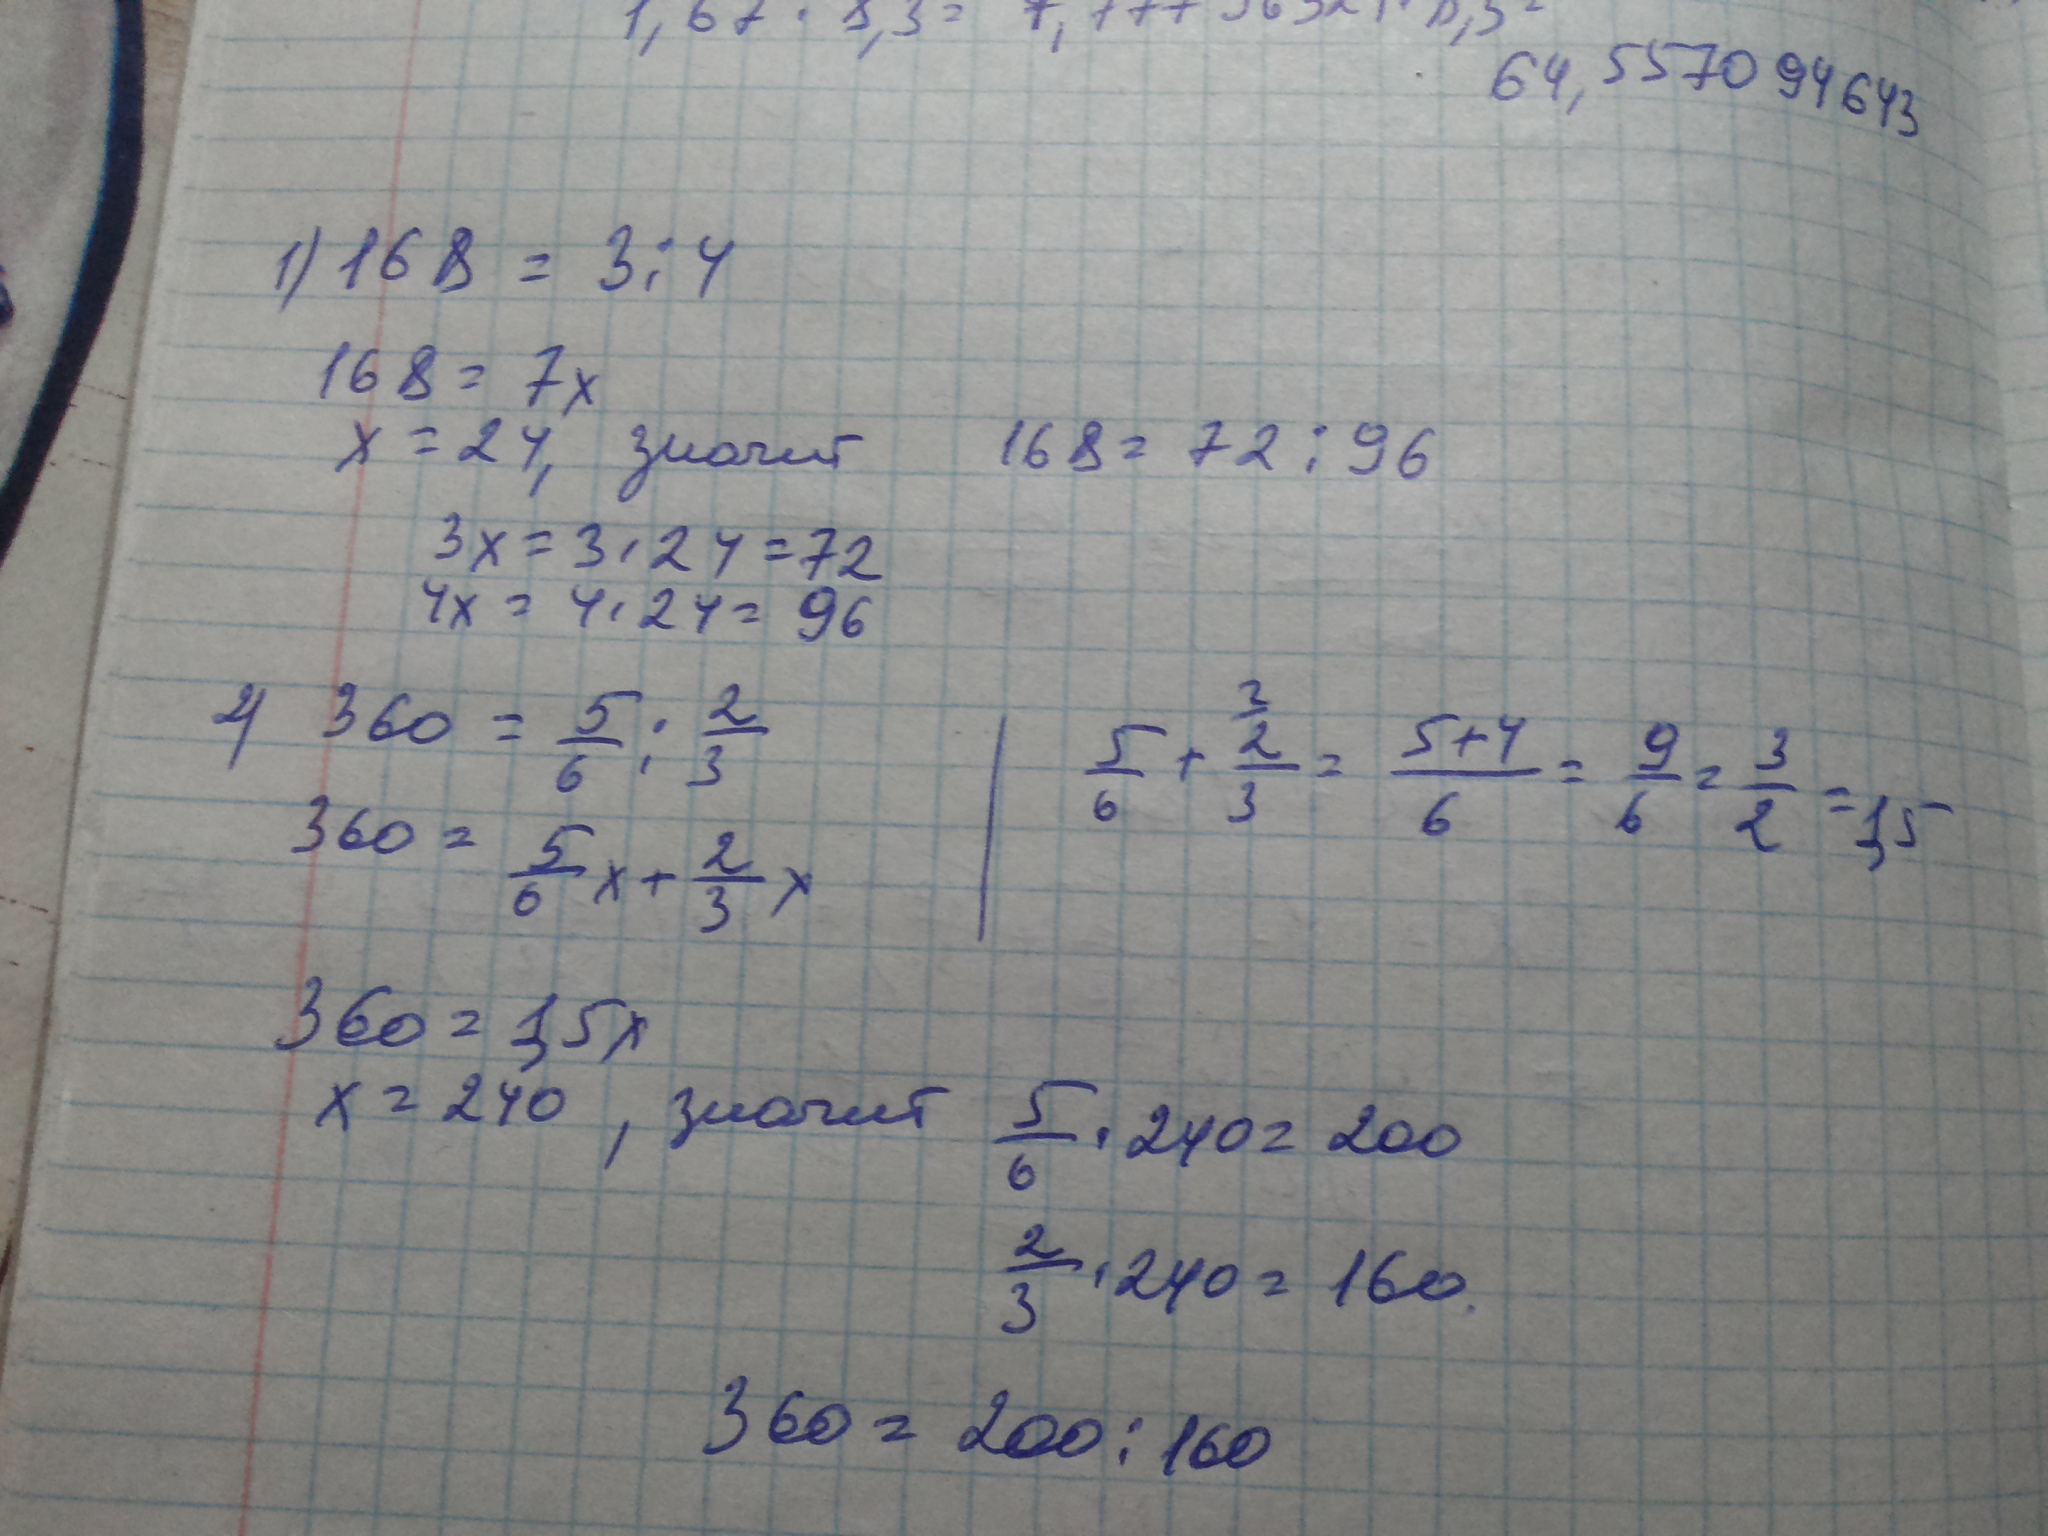 64,557094643
1) 168 = 3:4
168 = 7x
x = 24, значит 168 = 72 : 96
3x = 3·24 = 72
4x = 4·24 = 96
2) 360 = 5/6 : 2/3
360 = 5/6 x + 2/3 x
5/6 + 2/3 = 5+4/6 = 9/6 = 3/2 = 1,5
360 = 1,5x
x = 240, значит 5/6 · 240 = 200
2/3 · 240 = 160.
360 = 200 : 160